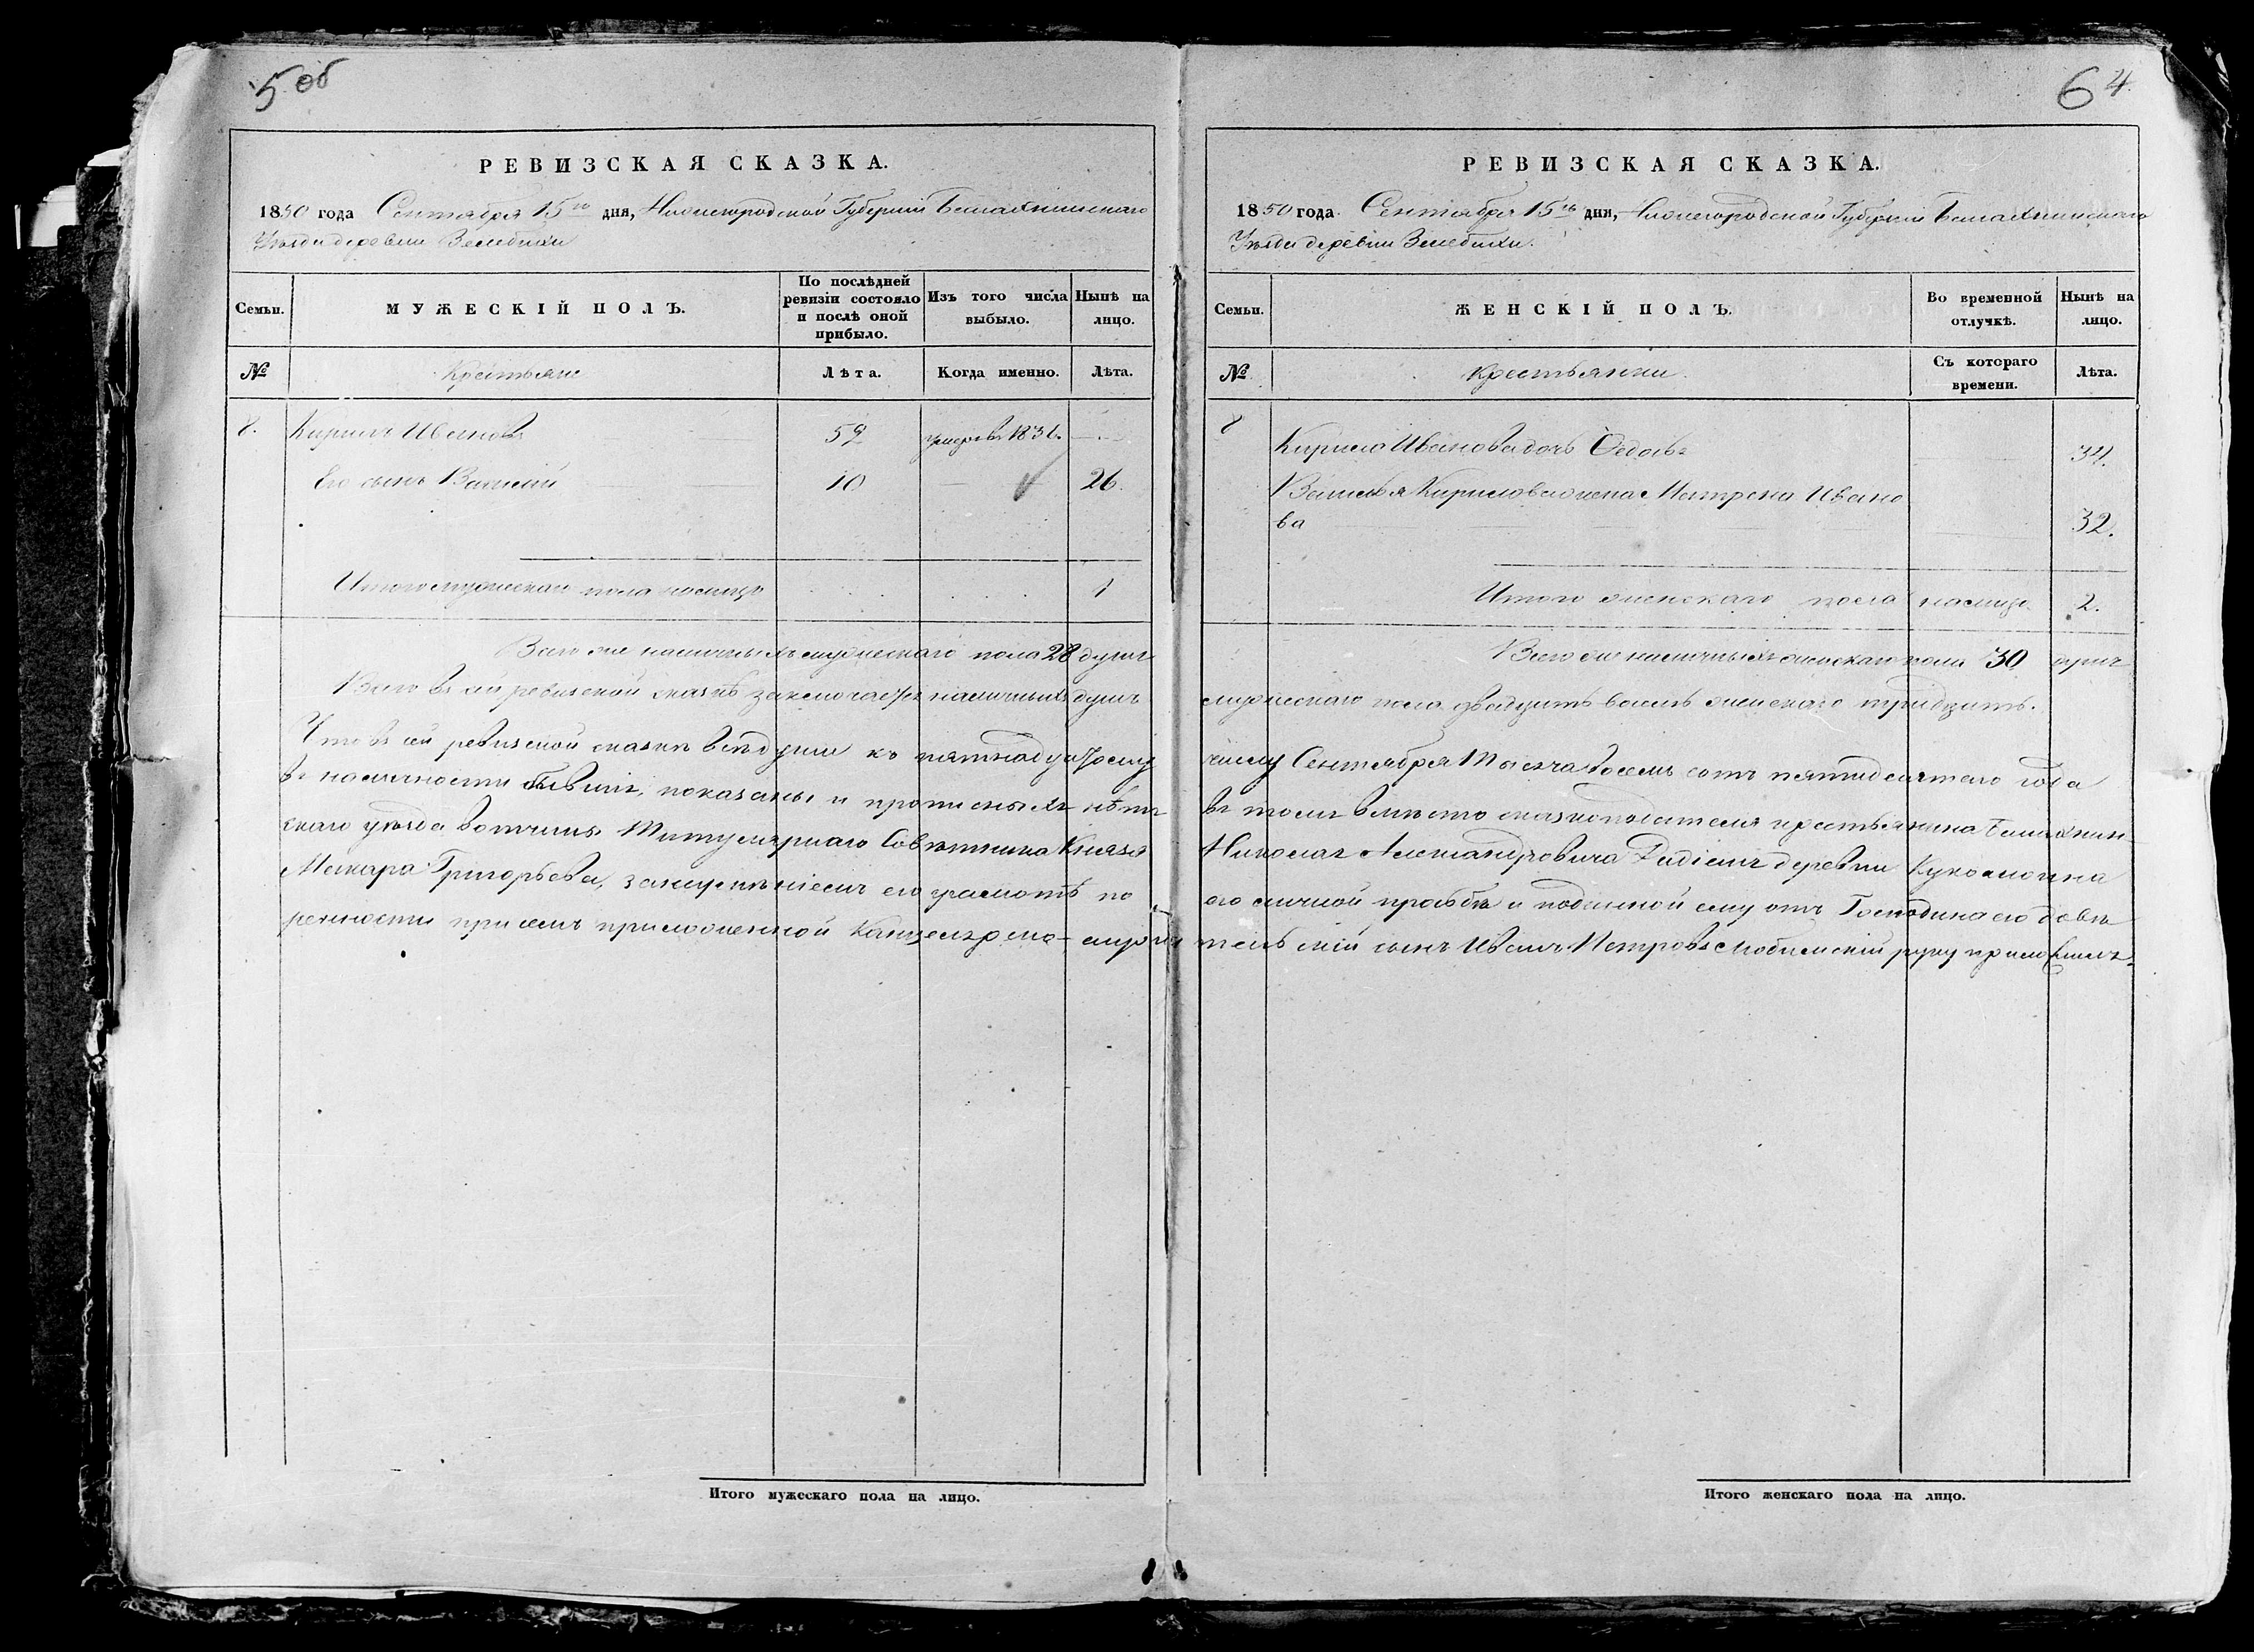 5 об
РЕВИЗСКАЯ СКАЗКА.
1850 года Сентября 15го дня, Нижегородской Губерніи Балахнинскаго
Уѣзда деревни
Семьи. МУЖЕСКІЙ ПОЛЪ. По послѣдней ревизіи состояло и послѣ оной прибыло. Изъ того числа выбыло. Нынѣ на лицо.
№ Крестьяне Лѣта. Когда именно. Лѣта.
8. Кирилъ Ивановъ 59 умеръ въ
Его сынъ Василій 10 26.
Итого мужескаго пола налицо 1
Всего же наличныхъ мужескаго пола 28 душъ
Всего въ сей ревизской сказкѣ заключается наличныхъ душъ
Что въ сей ревизской сказкѣ всѣ души къ пятнадцатому
въ наличности бывшіе, показаны и прописныхъ нѣтъ
скаго уѣзда вотчины Титулярнаго Совѣтника Князя
Макара Григорьева, за неумѣніемъ его грамотѣ по
ренности при семъ приложенной
Итого мужескаго пола на лицо.
6 4
РЕВИЗСКАЯ СКАЗКА.
1850 года Сентября 15го дня, Нижегородской Губерніи Балахнинскаго
Уѣзда деревни
Семьи. ЖЕНСКІЙ ПОЛЪ. Во временной отлучкѣ. Нынѣ на лицо.
№ Крестьянки Съ котораго времени. Лѣта.
8 Кирила Иванова дочь Федосья 34.
Василья Кирилова жена Матрена Ивано
ва 32.
Итого женскаго пола налицо 2.
Всего же наличныхъ женскаго пола 30 душъ
мужескаго пола двадцать восемь женскаго тридцать.
числу Сентября Тысяча восемь сотъ пятидесятаго года
въ томъ вмѣсто сказкоподателя крестьянина Балахнин
Николая Александровича деревни
его личной прозьбѣ и поданной ему отъ Господина его довѣ
сынъ Иванъ Петровъ руку приложилъ.
Итого женскаго пола на лицо.